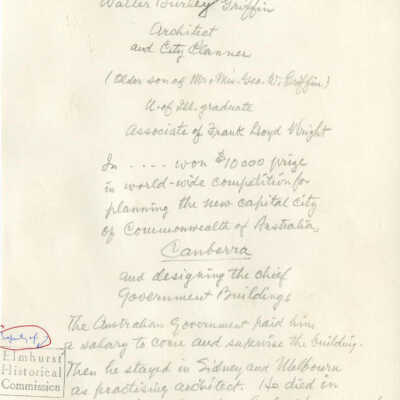 Walter Burley Griffin
Architect
and City Planner
(Older son of Mr & Mrs Geo. W. Griffin)
U. of Ill. graduate
Associate of Frank Lloyd Wright
In .... won $10000 prize
in world-wide competition for
planning the new capital city
of Commonwealth of Australia,
Canberra
and designing the chief
Government Buildings
The Australian Government paid him
a salary to come and supervise the building.
Then he stayed in Sidney and Melbourn
as practising architect. He died in
Property of
Elmhurst
Historical
Commission